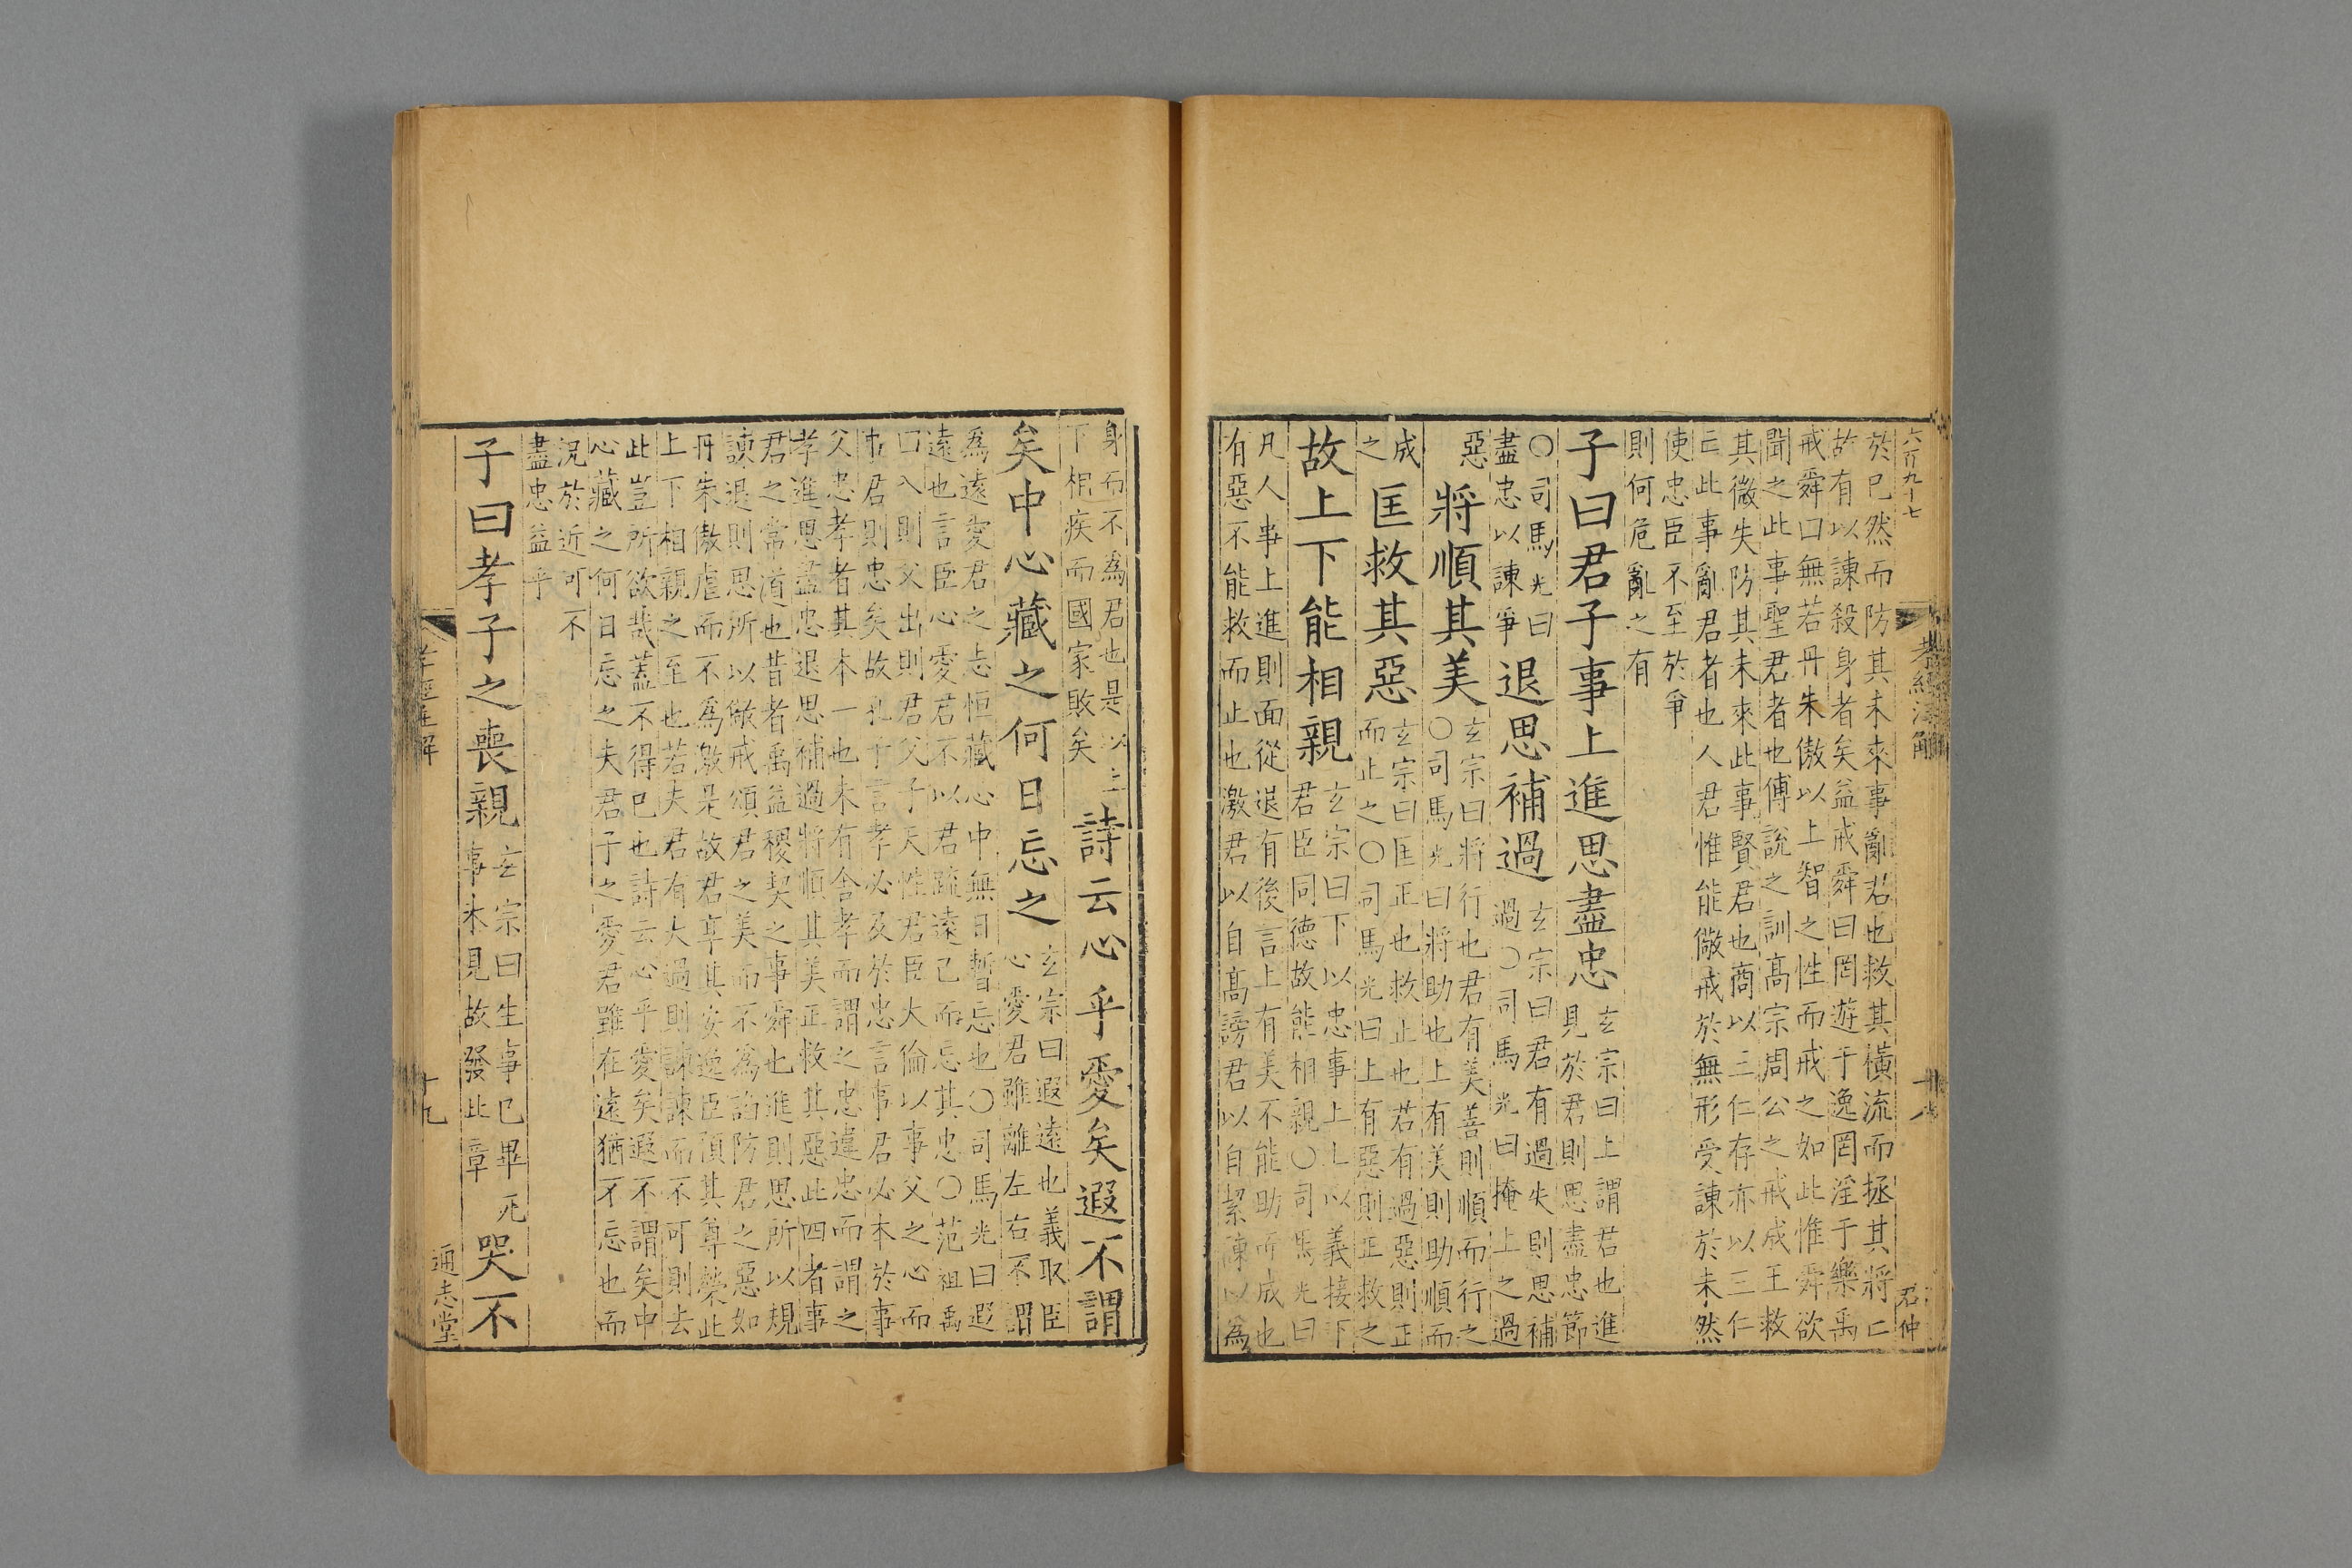 六百九十七
於已然而防其未來事亂君也救其橫流而拯其將亡
故有以諫殺身者矣益戒舜曰罔遊于逸罔淫于樂禹
戒舜曰無若丹朱傲以上智之性而戒之如此惟舜欲
聞之此事聖君者也傅說之訓高宗周公之戒成王救
其微失防其未來此事賢君也商以三仁存亦以三仁
亡此事亂君者也人君惟能儆戒於無形受諫於未然
使忠臣不至於爭
則何危亂之有
子曰君子事上進思盡忠玄宗曰上謂君也進
見於君則思盡忠節
〇司馬光曰
盡忠以諫爭退思補過玄宗曰君有過失則思補
過〇司馬光曰掩上之過
惡將順其美玄宗曰將行也君有美善則順而行之
〇司馬光曰將助也上有美則助順而
成
之匡救其惡玄宗曰匡正也救止也君有過惡則正
而止之〇司馬光曰上有惡則正救之
故上下能相親玄宗曰下以忠事上上以義接下
君臣同德故能相親〇司馬光曰
凡人事上進則面從退有後言上有美不能助而成也
有惡不能救而止也激君以自高謗君以自絜諫以為
孝經注解
十八
君仲
身而不為君也是以上
下相疾而國家敗矣詩云心乎愛矣遐不謂
矣中心藏之何日忘之玄宗曰遐遠也義取臣
心愛君雖離左右不謂
為遠愛君之志恒藏心中無日暫忘也〇司馬光曰遐
遠也言臣心愛君不以君疏遠己而忘其忠〇范祖禹
曰入則父出則君父子天性君臣大倫以事父之心而
事君則忠矣故孔子言孝必及於忠言事君必本於事
父忠孝者其本一也未有舍孝而謂之忠違忠而謂之
孝進思盡忠退思補過將順其美正救其惡此四者事
君之常道也昔者禹益稷契之事舜也進則思所以規
諫退則思所以儆戒頌君之美而不為諂防君之惡如
丹朱傲虐而不為激是故君享其安逸臣預其尊榮此
上下相親之至也若夫君有大過則諫諫而不可則去
此豈所欲哉蓋不得已也詩云心乎愛矣遐不謂矣中
心藏之何日忘之夫君子之愛君雖在遠猶不忘也而
況於近可不
盡忠益乎
子曰孝子之喪親玄宗曰生事已畢死
事未見故發此章哭不
孝經注解
十九
通志堂